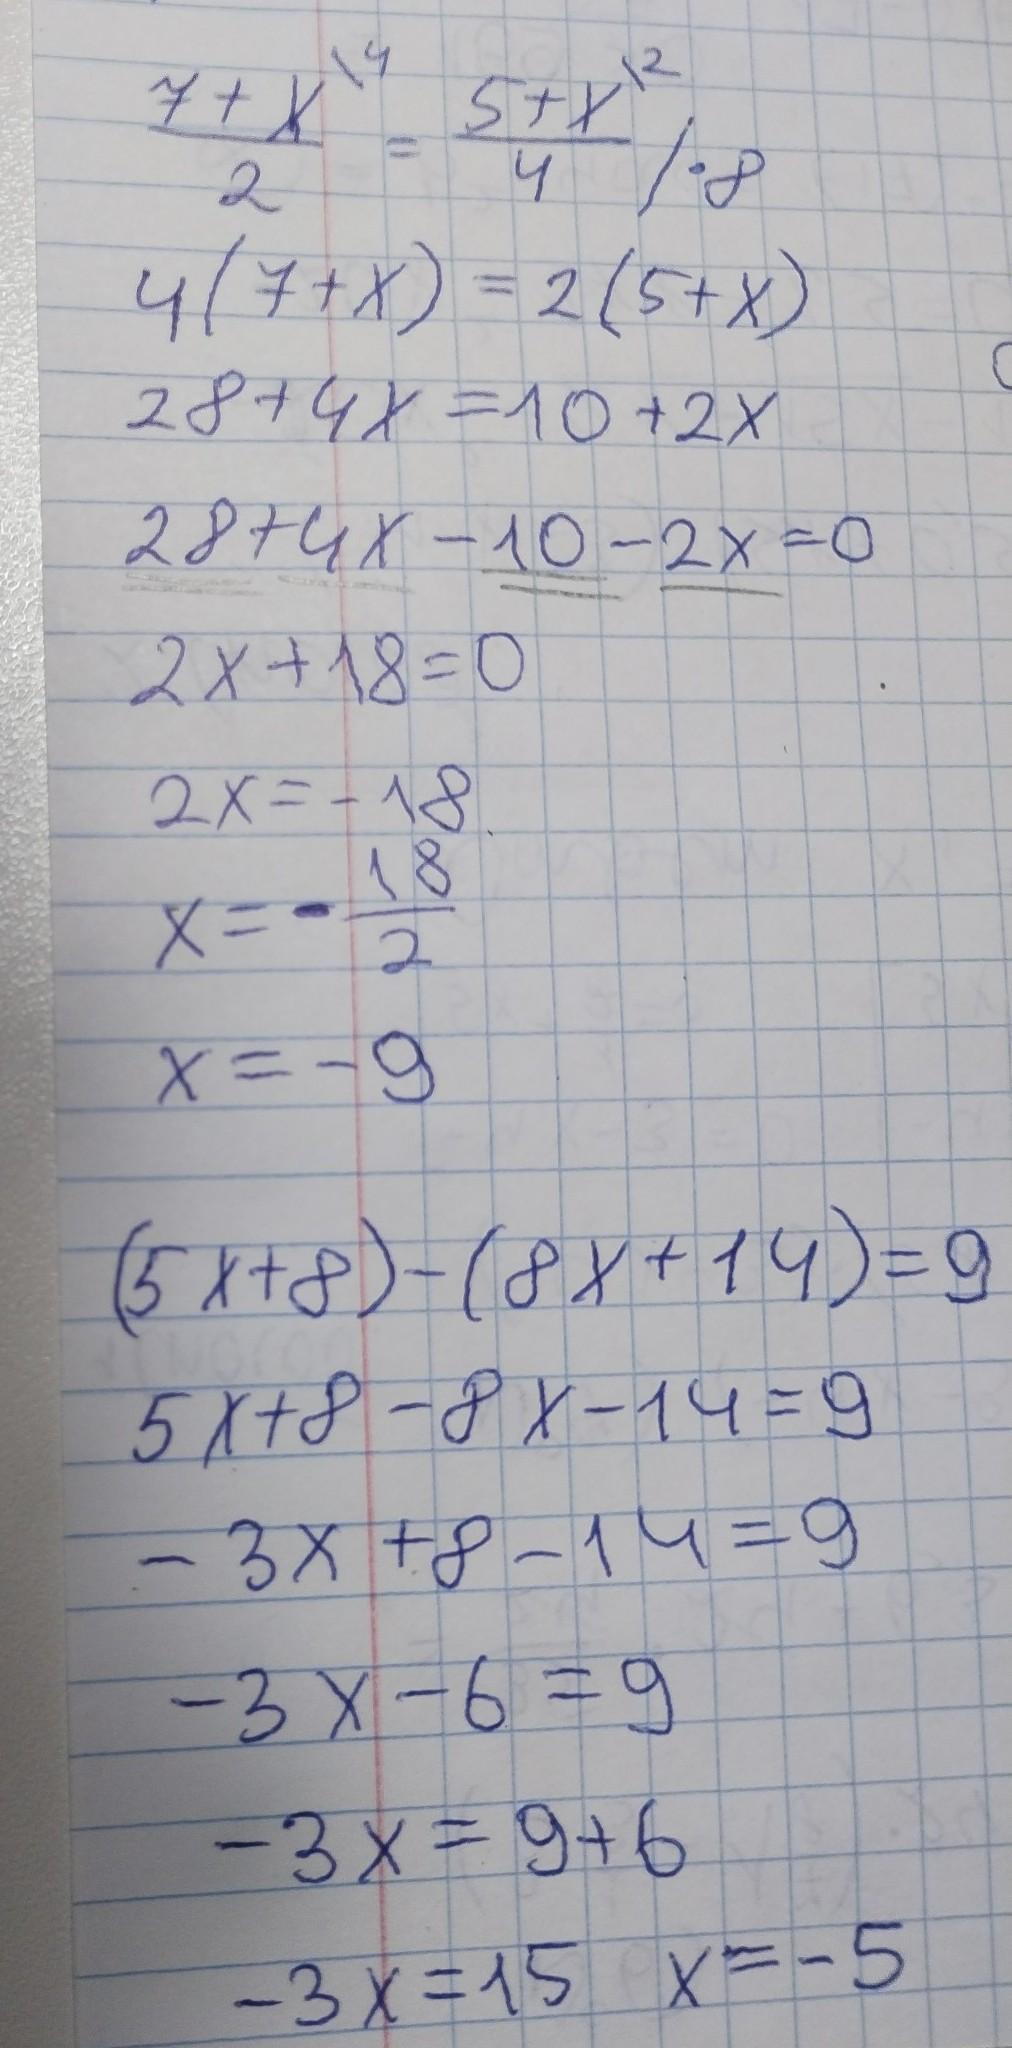 7+x\4 / 2 = 5+x\2 / 4 /·8
4(7+x)=2(5+x)
28+4x=10+2x
28+4x-10-2x=0
2x+18=0
2x=-18
x=-18/2
x=-9
(5x+8)-(8x+14)=9
5x+8-8x-14=9
-3x+8-14=9
-3x-6=9
-3x=9+6
-3x=15 x=-5